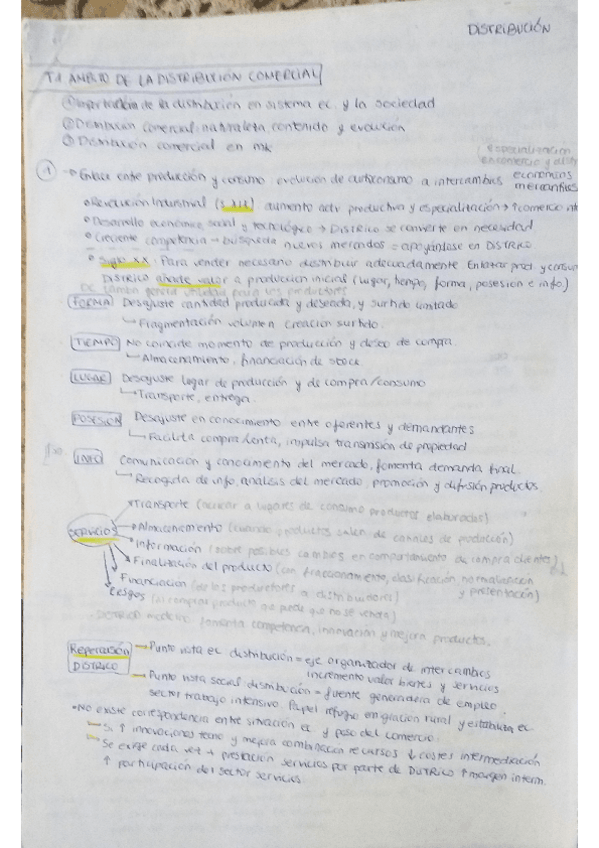 DISTRIBUCIÓN
T.1 AMBITO DE LA DISTRIBUCIÓN COMERCIAL
① Importancia de la distribución en sistema ec. y la sociedad
② Distribución comercial: naturaleza, contenido y evolución
③ Distribución comercial en mk
especialización
en comercio y distr
① → Enlace entre producción y consumo: evolución de autoconsumo a intercambios económicos mercantiles
• Revolución Industrial (S. XIX) aumento actv productiva y especialización → ↑comercio int
• Desarrollo económico, social y tecnológico → DISTRICO se convierte en necesidad
• Creciente competencia → búsqueda nuevos mercados = apoyándose en DISTRICO
• Siglo XX: Para vender necesario distribuir adecuadamente. Enlazar prod. y consum
DISTRICO añade valor a producción inicial (lugar, tiempo, forma, posesión e info.)
DC también genera utilidad para los productores
FORMA Desajuste cantidad producida y deseada, y surtido limitado
↳ Fragmentación volumen creación surtido.
TIEMPO No coincide momento de producción y deseo de compra.
↳ Almacenamiento, financiación de stock.
LUGAR Desajuste lugar de producción y de compra/consumo
↳ Transporte, entrega.
POSESIÓN Desajuste en conocimiento entre oferentes y demandantes
↳ Facilita compra/venta, impulsa transmisión de propiedad
INFO Comunicación y conocimiento del mercado, fomenta demanda final.
↳ Recogida de info, análisis del mercado, promoción y difusión productos.
SERVICIOS
→ Transporte (acercar a lugares de consumo productos elaborados)
→ Almacenamiento (cuando productos salen de canales de producción)
→ Información (sobre posibles cambios en comportamiento de compra clientes)
→ Finalización del producto (con fraccionamiento, clasificación, normalización y presentación)
Financiación (de los productores a distribuidores)
Riesgos (al comprar producto puede que no se venda)
- DISTRICO moderna: fomenta competencia, innovación y mejora productos.
Repercusión DISTRICO → Punto vista ec distribución = eje organizador de intercambios
incremento valor bienes y servicios
→ Punto vista social distribución = fuente generadora de empleo
sector trabajo intensivo. Papel refugio emigración rural y estabiliza ec.
• No existe correspondencia entre situación ec y peso del comercio.
→ Si ↑ innovaciones tecno y mejora combinación recursos ↓ costes intermediación
→ Se exige cada vez + prestación servicios por parte de DISTRICO ↑ margen interm.
↑ participación del sector servicios.